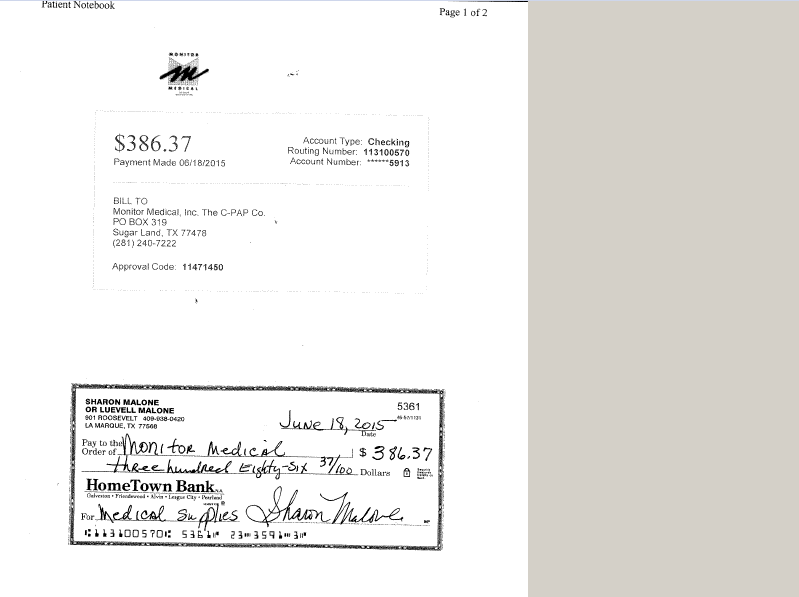 Patient Notebook
Page 1 of 2
MONITOR
m
MEDICAL
$386.37
Payment Made 06/18/2015
Account Type: Checking
Routing Number: 113100570
Account Number: ******5913
BILL TO
Monitor Medical, Inc. The C-PAP Co.
PO BOX 319
Sugar Land, TX 77478
(281) 240-7222
Approval Code: 11471450
SHARON MALONE
OR LUEVELL MALONE
901 ROOSEVELT 409-938-0420
LA MARQUE, TX 77568
5361
June 18, 2015
Date
Pay to the
Order of Monitor Medical $ 386.37
three hundred Eighty-Six 37/100 Dollars
HomeTown Bank, N.A.
Galveston • Friendswood • Alvin • League City • Pearland
For Medical Supplies Sharon Malone
⑆113100570⑆ 5361⑈ 23⑈3591⑈3⑈